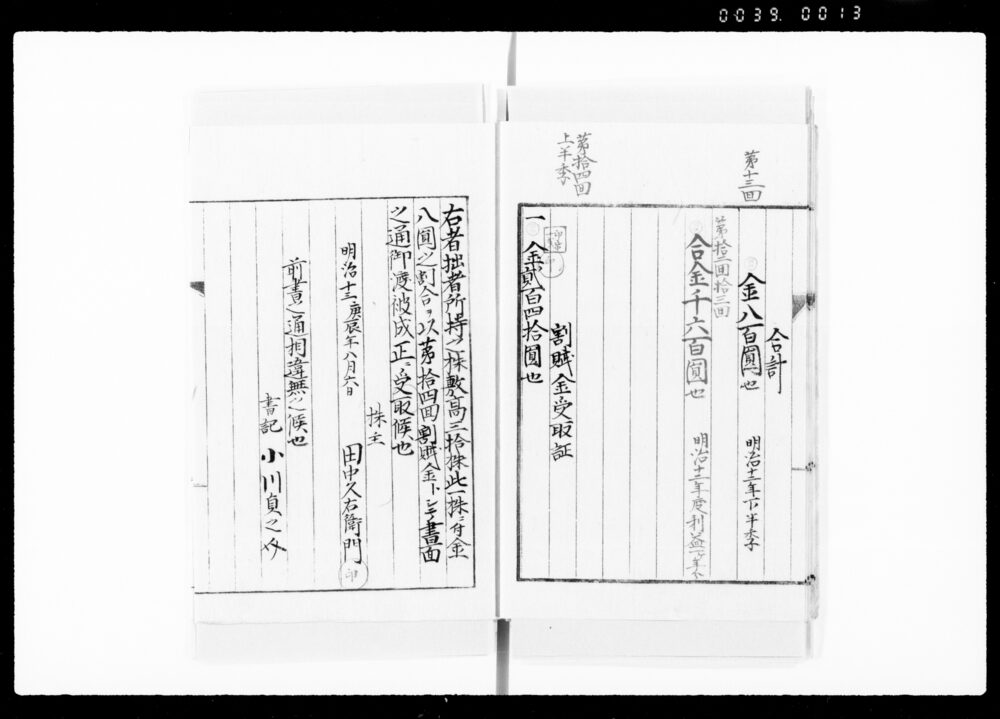 0039. 0013
第十三回
合計
金八百圓也 明治十二年下半季
第拾二回拾三回
合金千六百圓也 明治十二年度利益
第拾四回
上半季
割賦金受取証
一 金貳百四拾圓也
右者拙者所持之株敷高三拾株此一株ニ付金
八圓之割合ヲ以第拾四回割賦金トシテ書面
之通御渡被成正ニ受取候也
明治十三庚辰年八月六日
株主
田中久右衛門 印
前書之通相違無之候也
書記 小川貞之